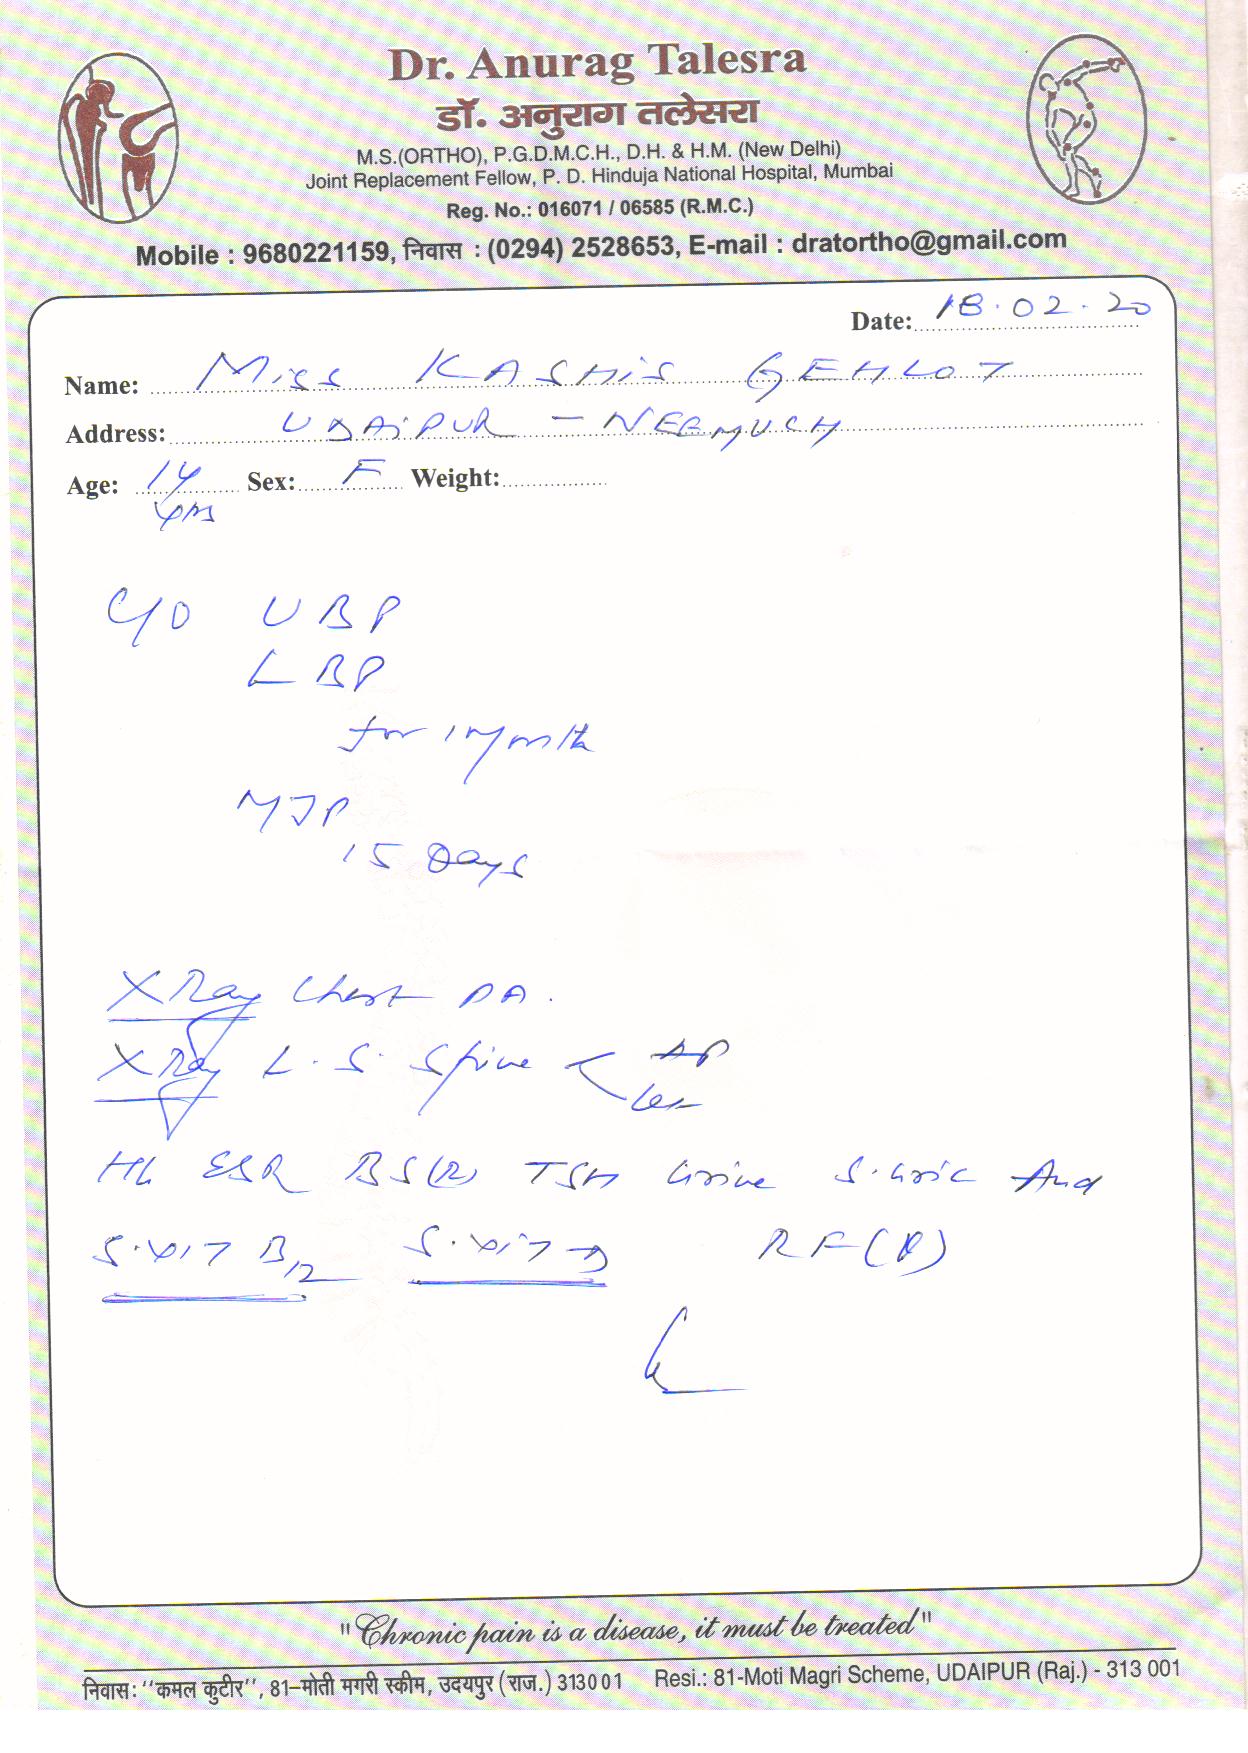 Dr. Anurag Talesra
डॉ. अनुराग तलेसरा
M.S.(ORTHO), P.G.D.M.C.H., D.H. & H.M. (New Delhi)
Joint Replacement Fellow, P. D. Hinduja National Hospital, Mumbai
Reg. No.: 016071 / 06585 (R.M.C.)
Mobile : 9680221159, निवास : (0294) 2528653, E-mail : dratortho@gmail.com
Date: 18.02.20
Name: Miss KASHIS GEHLOT
Address: UDAIPUR - NEEMUCH
Age: 14 yrs Sex: F Weight:
C/O UBP
LBP
for 1 month
MJP
15 Days
X Ray Chest PA.
X Ray L.S. Spine < AP
Lat
ESR BS(R) TSH Urine S. Uric Acid
S. VIT B12 S. VIT D RF(Q)
"Chronic pain is a disease, it must be treated"
निवास: ‘‘कमल कुटीर’’, 81–मोती मगरी स्कीम, उदयपुर (राज.) 313001 Resi.: 81-Moti Magri Scheme, UDAIPUR (Raj.) - 313 001